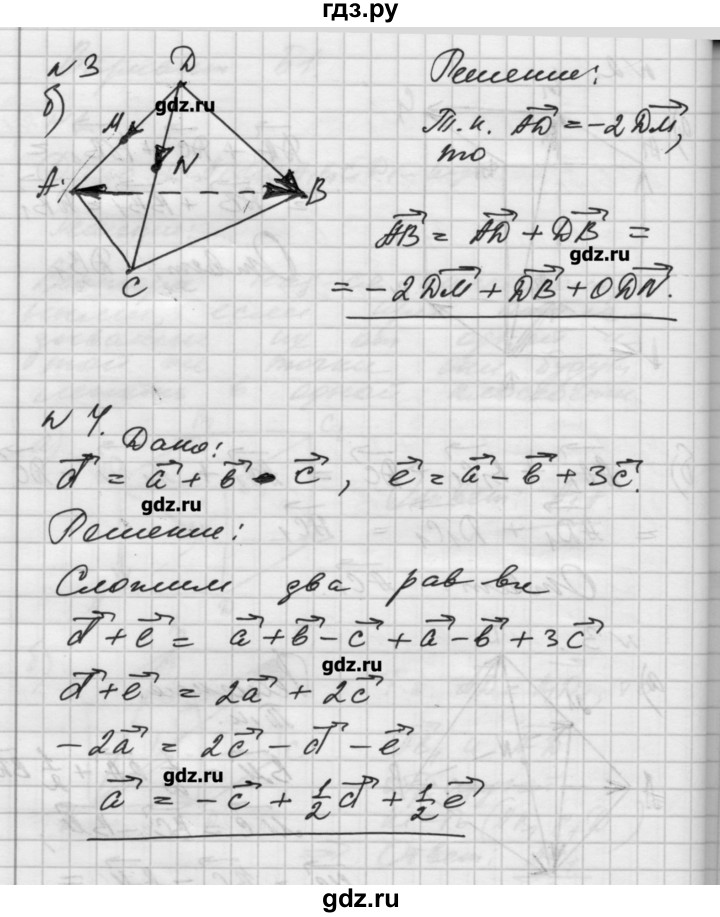 гдз.ру
№3
б)
D
gdz.ru
M
N
A
B
C
Решение:
Т.к. AD = -2 DM,
то
AB = AD + DB =
gdz.ru
= -2 DM + DB + 0 DN.
№ 4.
Дано:
d = a + b - c, e = a - b + 3c.
gdz.ru
Решение:
Сложим два рав ва
d + e = a + b - c + a - b + 3c
gdz.ru
d + e = 2a + 2c
-2a = 2c - d - e
gdz.ru
a = -c + 1/2 d + 1/2 e
gdz.ru